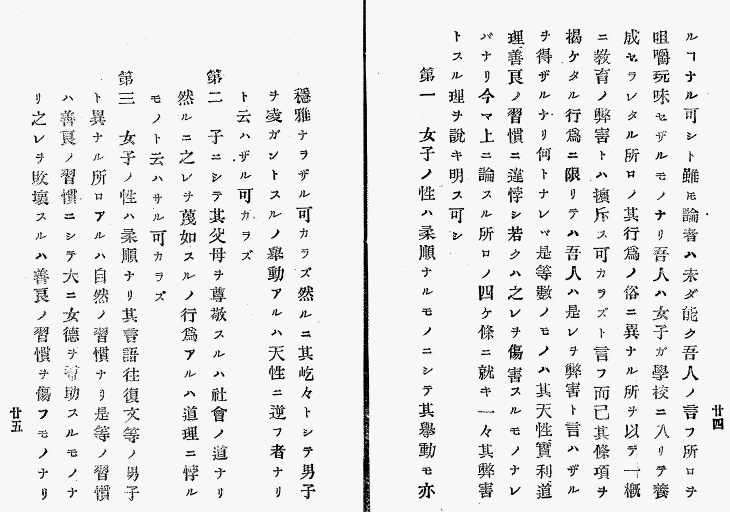 ルヿナル可シト雖モ論者ハ未ダ能ク吾人ノ言フ所ロヲ
咀嚼玩味セザルモノナリ吾人ハ女子ガ學校ニ入リテ養
成セラレタル所ロノ其行爲ノ俗ニ異ナル所ヲ以テ一概
ニ教育ノ弊害トハ擯斥ス可カラズト言フ而已其條項ヲ
揭ケタル行爲ニ限リテハ吾人ハ是レヲ弊害ト言ハザル
ヲ得ザルナリ何トナレバ是等數ノモノハ其天性實利道
理善良ノ習慣ニ違悖シ若クハ之レヲ傷害スルモノナレ
バナリ今マ上ニ論スル所ロノ四ケ條ニ就キ一々其弊害
トスル理ヲ說キ明ス可シ
第一 女子ノ性ハ柔順ナルモノニシテ其擧動モ亦
廿四
穩雅ナラザル可カラズ然ルニ其屹々トシテ男子
ヲ凌ガントスルノ擧動アルハ天性ニ逆フ者ナリ
ト云ハザル可カラズ
第二 子ニシテ其父母ヲ尊敬スルハ社會ノ道ナリ
然ルニ之レヲ蔑如スルノ行爲アルハ道理ニ悖ル
モノト云ハサル可カラズ
第三 女子ノ性ハ柔順ナリ其言語往復文等ノ男子
ト異ナル所ロアルハ自然ノ習慣ナリ是等ノ習慣
ハ善良ノ習慣ニシテ大ニ女德ヲ補助スルモノナ
リ之レヲ敗壞スルハ善良ノ習慣ヲ傷フモノナリ
廿五